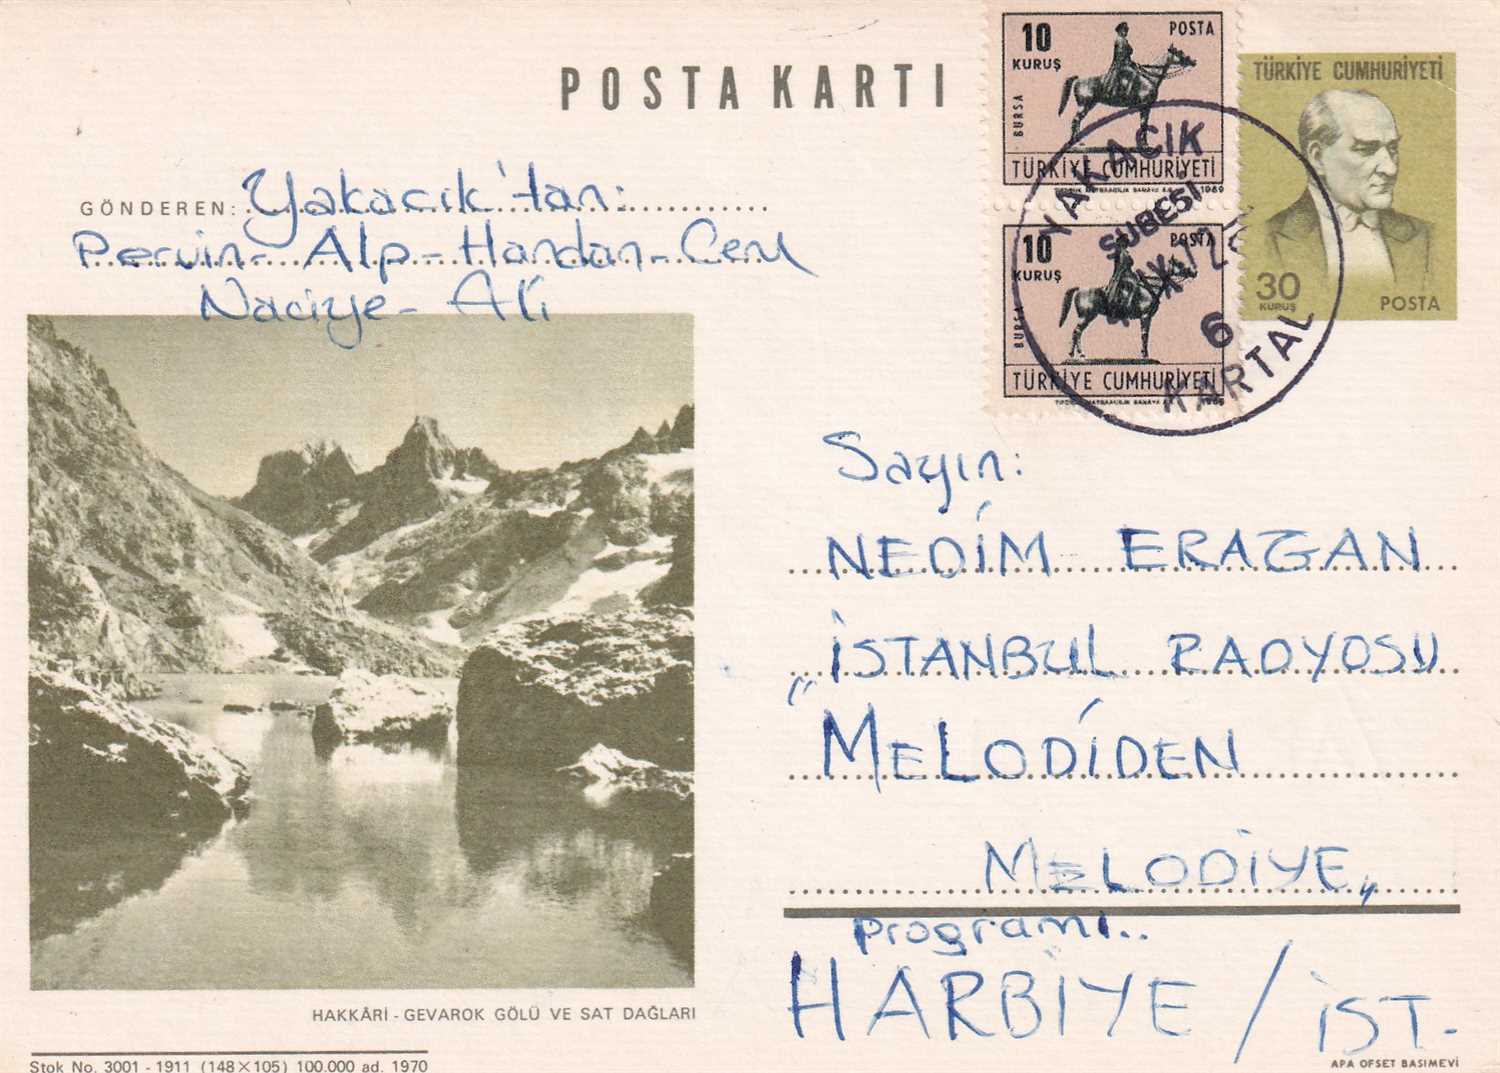 POSTA KARTI
10 KURUŞ POSTA
BURSA
TÜRKİYE CUMHURİYETİ
1969
10 KURUŞ POSTA
BURSA
TÜRKİYE CUMHURİYETİ
TÜRKİYE CUMHURİYETİ
30 KURUŞ POSTA
YAKACIK
ŞUBESİ
6
KARTAL
GÖNDEREN: Yakacık'tan:
Pervin- Alp- Handan- Cem
Naciye- Ali
Sayın:
NEDİM ERAGAN
İSTANBUL RADYOSU
"MELODİDEN
MELODİYE"
Programı..
HARBİYE / İST.
HAKKÂRİ - GEVAROK GÖLÜ VE SAT DAĞLARI
Stok No. 3001 - 1911 (148×105) 100.000 ad. 1970
APA OFSET BASIMEVİ